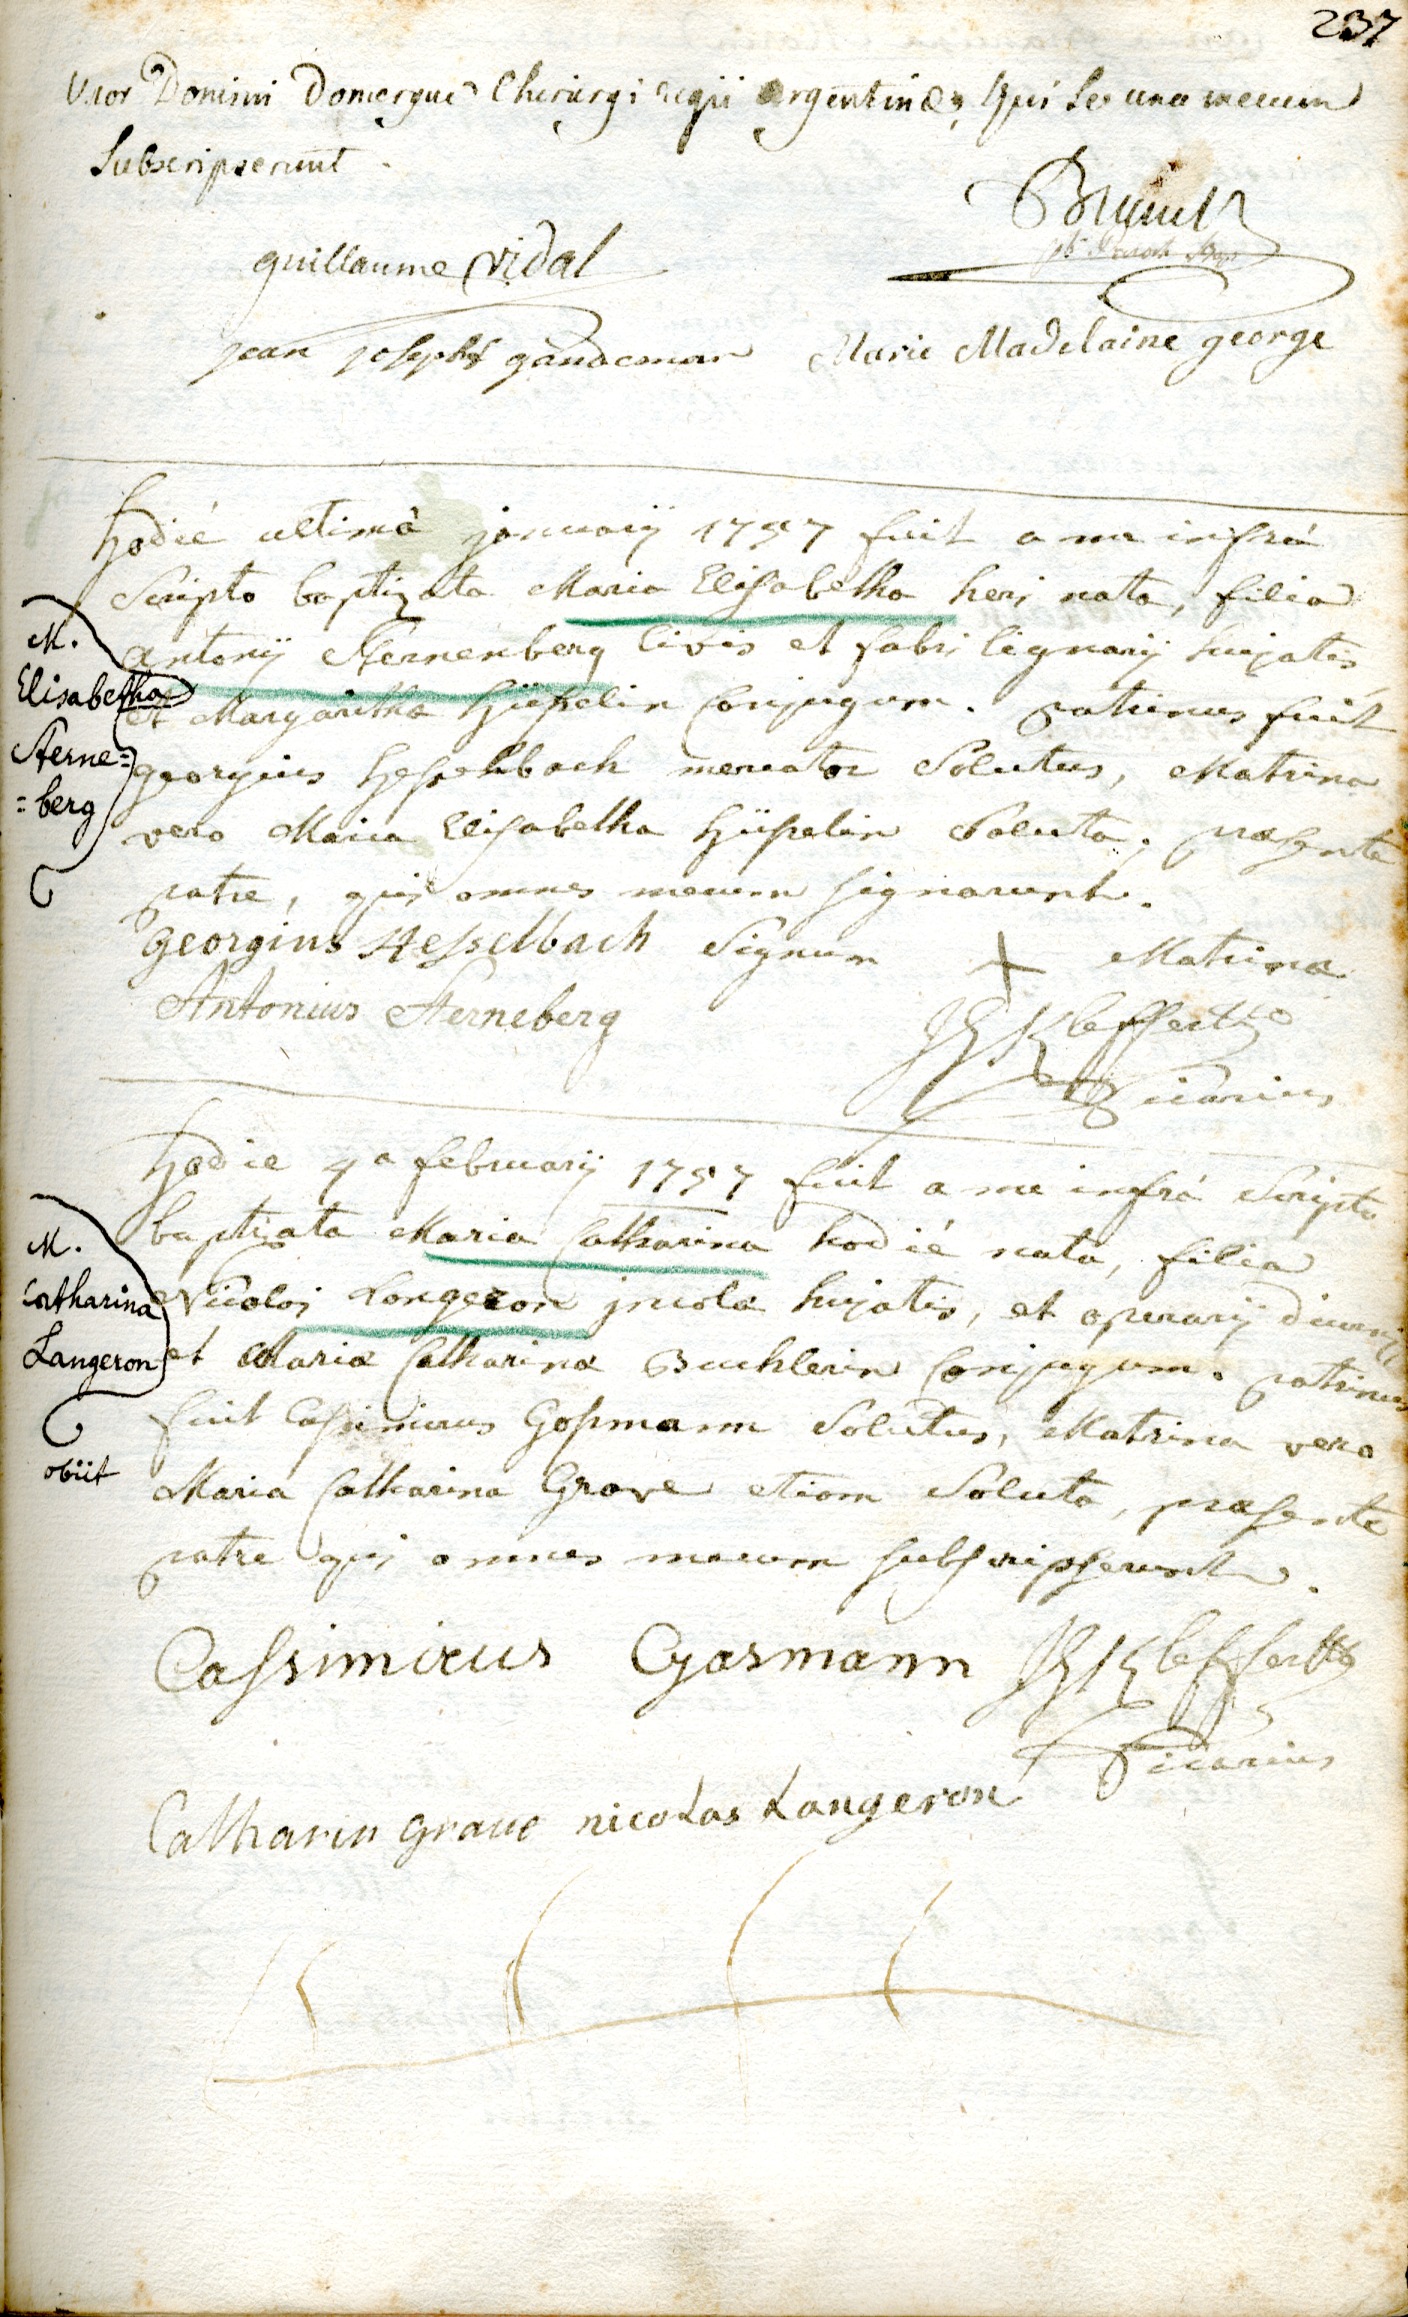 237
Uxor Domini Domergue Chirurgi regii argentinæ, qui se una mecum
Subscripserunt.
guillaume Vidal
jean joseph Marie Madelaine george
Hodié ultimâ january 1757 fuit a me infrá
Scripto baptizata Maria Elisabetha heri nata, filia
antonÿ Sternenberg Civis et fabri lignarÿ hujatis
et Margaritha Hüpelin Conjugum. patrinus fuit
georgius Hesselbach mercator Solutus, Matrina
vero Maria Elisabetha Hüpelin Soluta, præsente
patre, qui omnes mecum signarunt.
M.
Elisabetha
Sterne=
=berg
Georgius Hesselbach Signum + Matrinæ
Antonius Sterneberg
Vicarius
Hodie 4a februarÿ 1757 fuit a me infrá Scripto
baptizata Maria Catharina hodié nata, filia
Nicolai Langeron incolæ hujatis, et operarÿ diurni
et Mariæ Catharina Buchlerin Conjugum. patrinus
fuit Cassimirus Gosmann Solutus, Matrina vero
Maria Catharina Grave etiam Soluta, præsente
patre qui omnes mecum subscripserunt.
M.
Catharina
Langeron
obiit
Cassimirus Gasmann
Vicarius
Catharin Graue nicolas Langeron